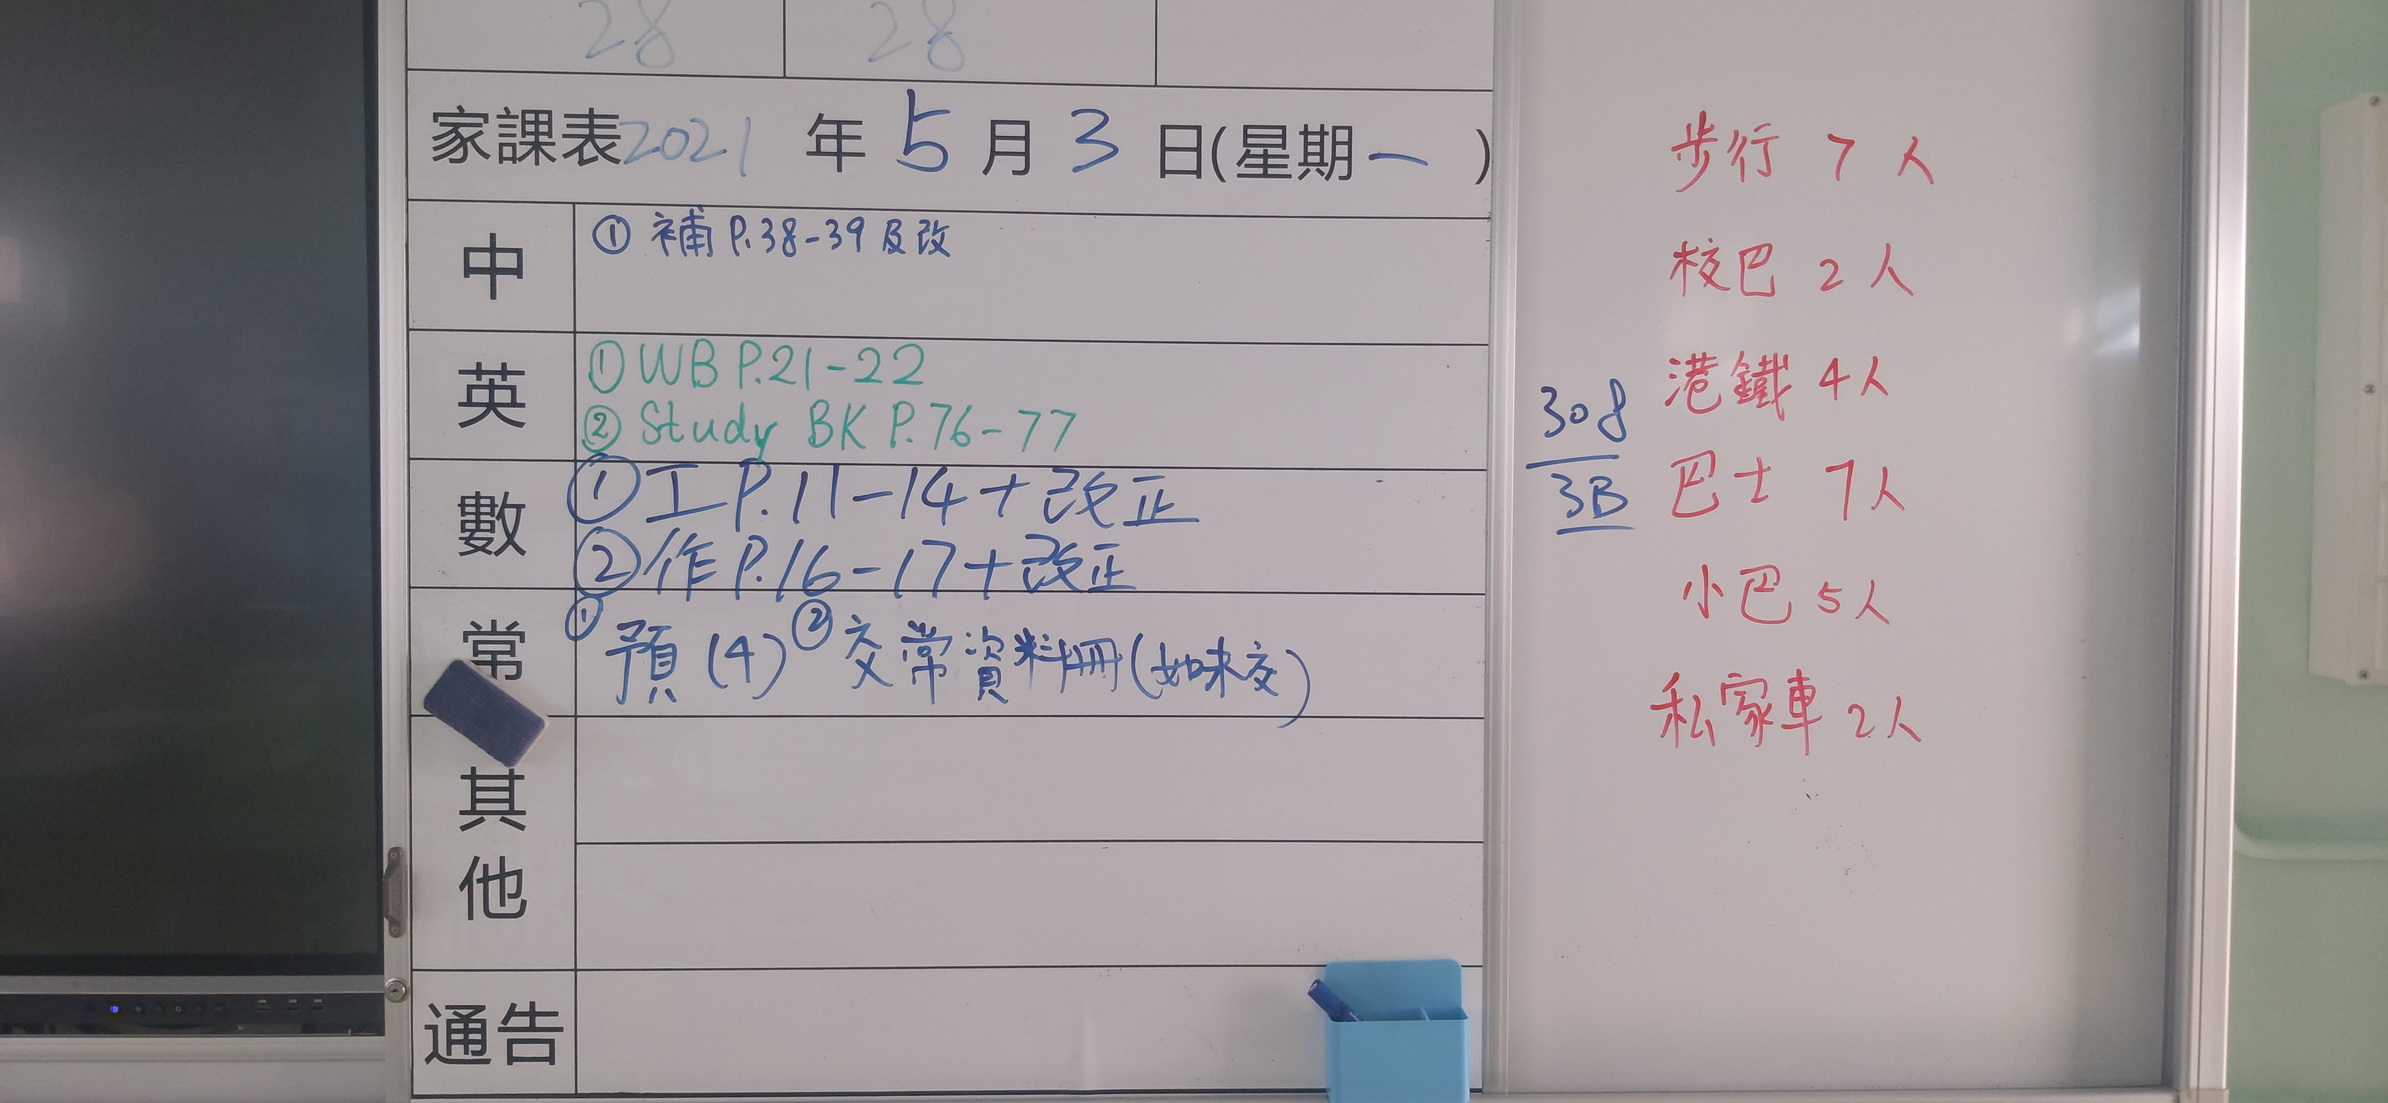 28 28
家課表2021 年 5 月 3 日(星期一 )
中
① 補 P.38-39 及改
英
① WB P.21-22
② Study BK P.76-77
數
① 工 P.11-14+改正
② 作 P.16-17+改正
常
① 預(4) ② 交常資料冊(如未交)
其他
通告
步行 7 人
校巴 2 人
港鐵 4人
巴士 7人
小巴 5人
私家車 2人
308
3B